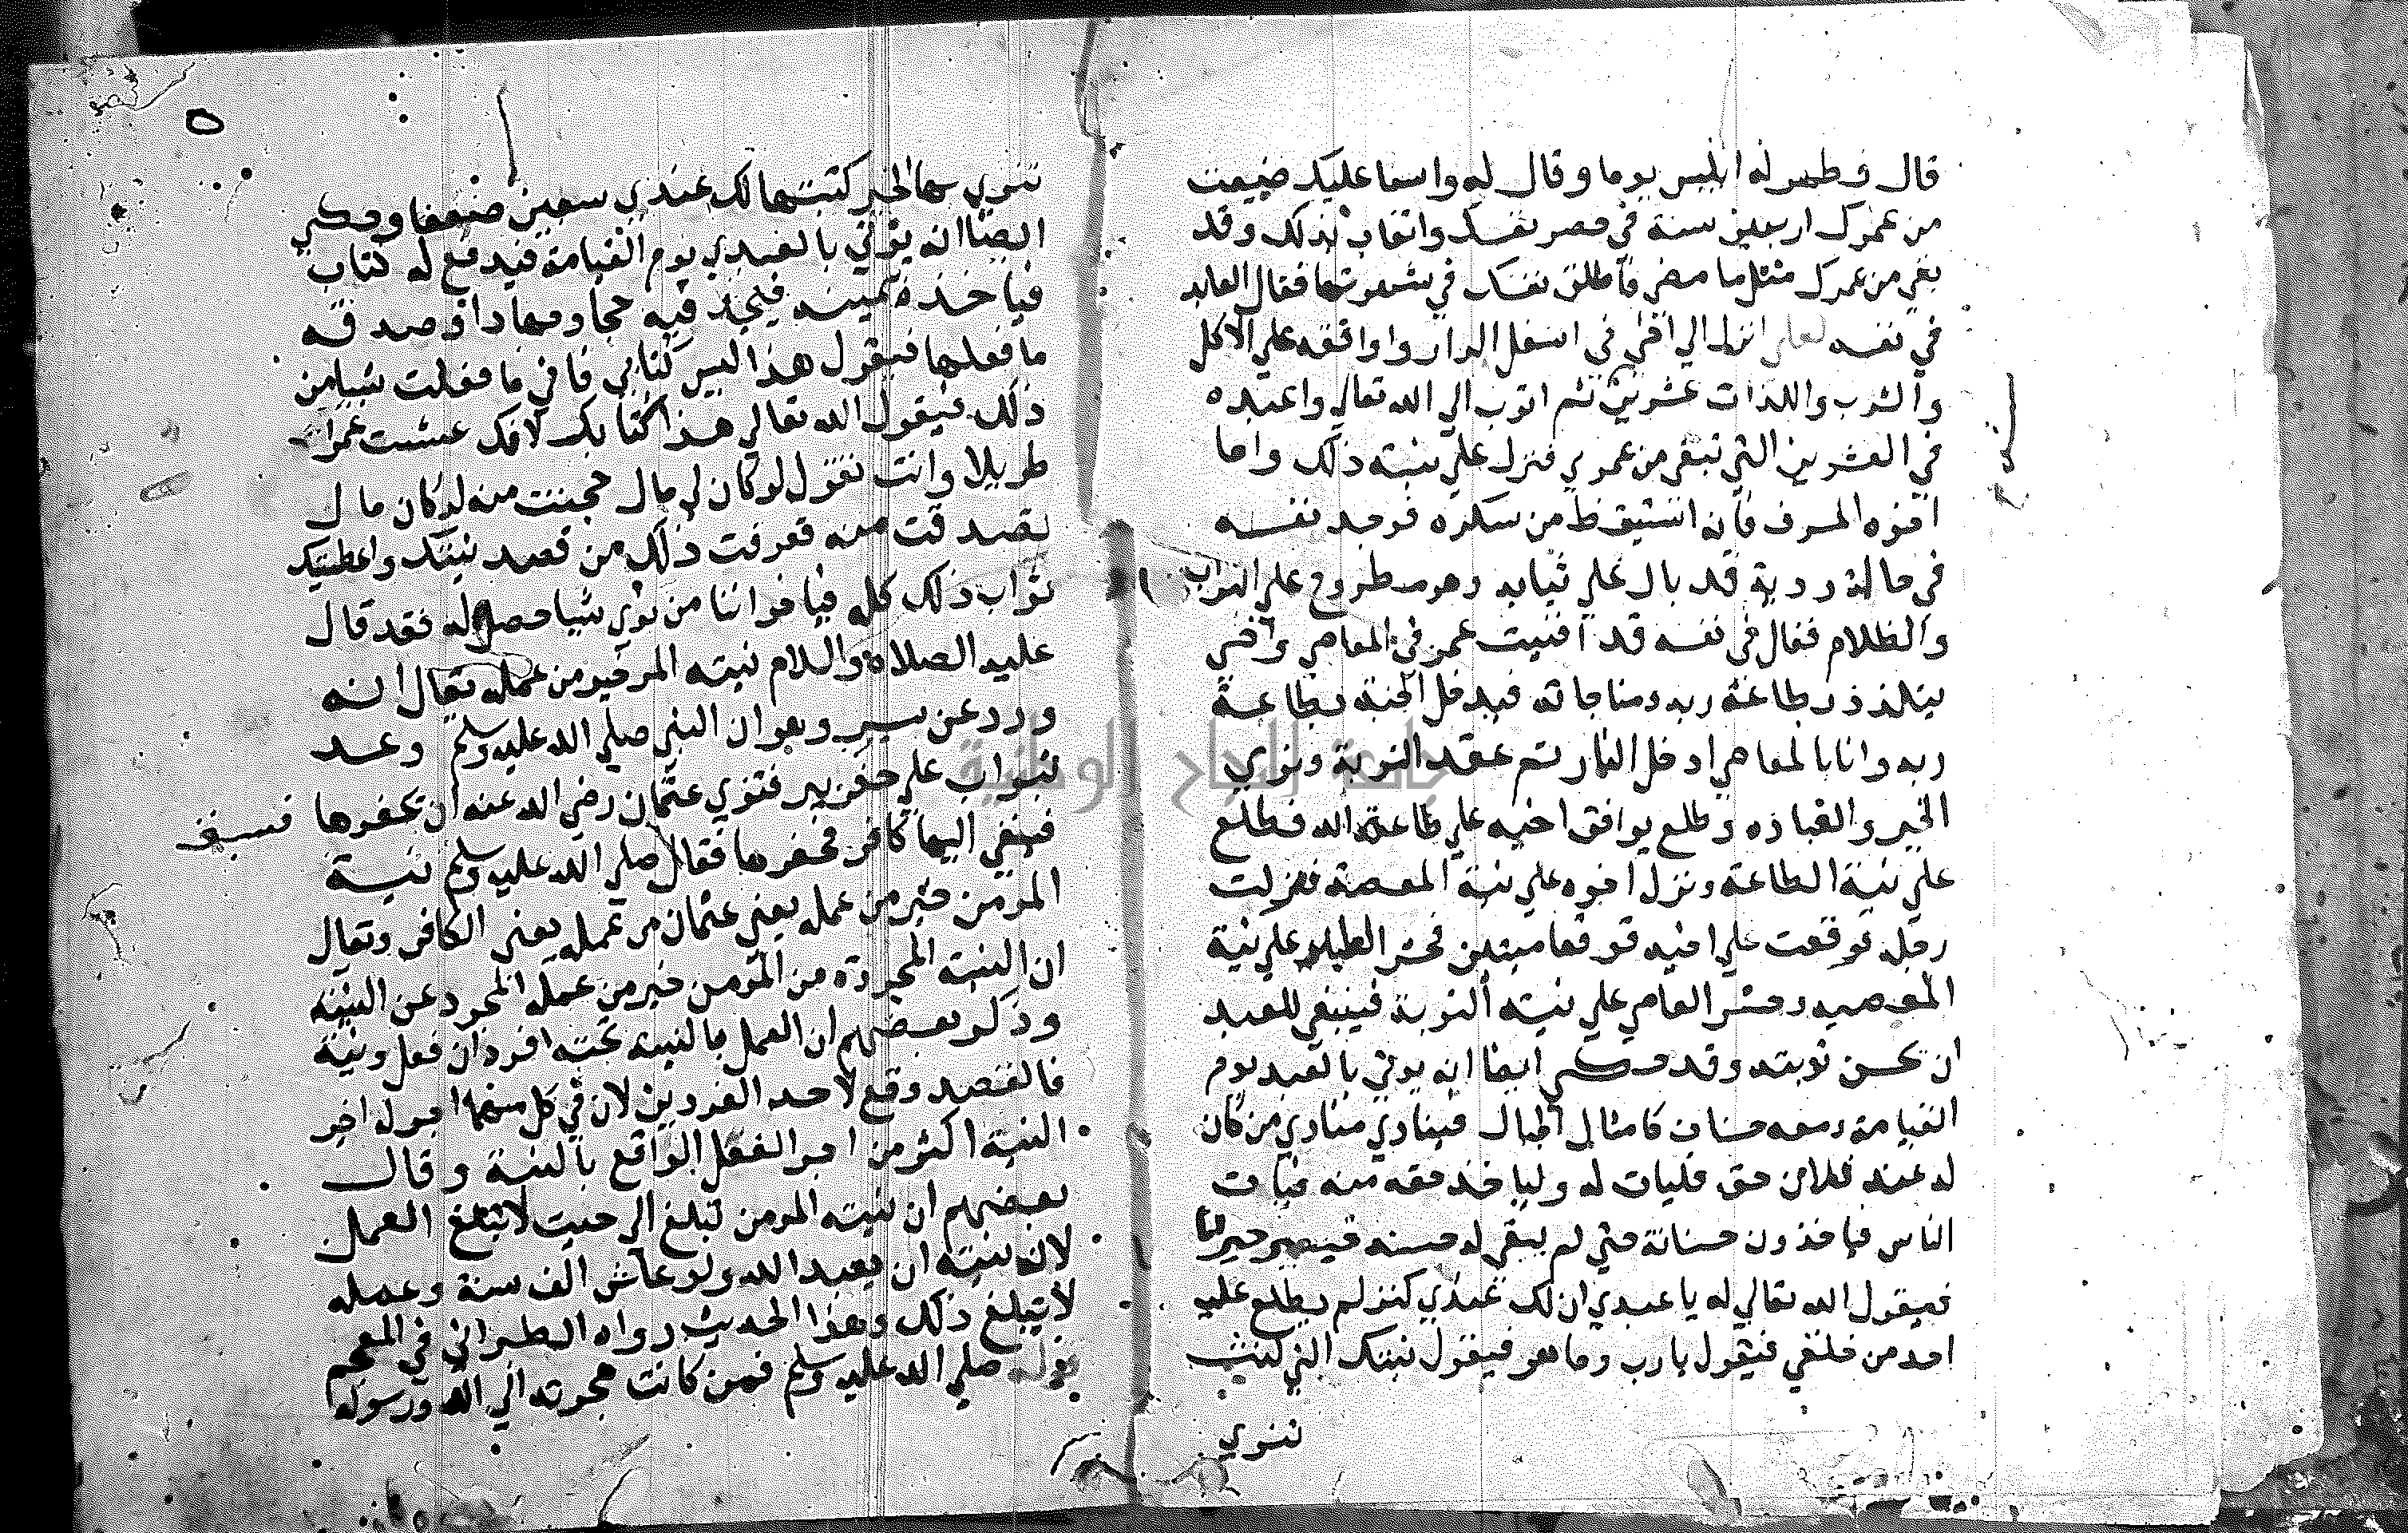 قال فظهر له ابليس يوما وقال له واسفا عليك ضيعت
من عمرك اربعين سنة في حصر نفسك واتعاب بدنك وقد
بقي من عمرك مثل ما مضي فاطلق نفسك في شهوتها فقال العابد
في نفسه لعلي انزل الي اخي في اسفل الدار واوافقه علي الاكل
والشرب واللذات عشرين ثم اتوب الي الله تعالي واعبده
في العشرين التي تبقي من عمري فنزل علي نيته ذلك واما
اخوه المسرف فانه استيقظ من سكره فوجد نفسه
في حالة ردية قد بال علي ثيابه وهو مطروح علي التراب
والظلام فقال في نفسه قد افنيت عمري في المعاصي واخي
يتلذذ بطاعة ربه ومناجاته فيدخل الجنة بطاعة
ربه وانا بالمعاصي ادخل النار ثم عقد التوبة ونوي
الخير والعبادة وطلع يوافق اخيه علي طاعة الله فطلع
علي نية الطاعة ونزل اخوه علي نية المعصية فزلت
رجله فوقعت علي اخيه فوقعا ميتين فحشر العابد علي نية
المعصيه وحشر العاصي علي نيته التوبة فينبغي للعبد
ان يحسن نوبته وقد حكي ايضا انه يوتي بالعبد يوم
القيامة ومعه حسنات كامثال الجبال فينادي منادي من كان
له عند فلان حق فليات له ولياخذ حقه منه فيات
الناس فياخذون حسناته حتي لم يبقي له حسنه فيصير حيرانا
فيقول الله تعالي له يا عبدي ان لك عندي كنز لم يطلع عليه
احد من خلقي فيقول يا رب وما هو فيقول نيتك التي كنت
تنوي
تنوي بها الخير كتبتها لك عندي سبعين ضعفا وحكي
ايضا انه يؤتي بالعبدي يوم القيامة فيدفع له كتاب
فياخذه بيمينه فيجد فيه حجا وجهادا وصدقه
ما فعلها فيقول هذا ليس كتابي فاني ما فعلت شيا من
ذلك فيقول الله تعالي هذا كتابك لانك عشت عمرا
طويلا وانت تقول لو كان لي مال حججت منه لو كان مال
تصدقت منه فعرفت ذلك من قصد نيتك واعطيتك
ثواب ذلك كله فيا اخواننا من نوي شيا حصل له فقد قال
عليه الصلاة والسلام نيته المؤمن خير من عمله يقال انه
ورد عن سبب وهو ان النبي صلي الله عليه وسلم وعد
بثواب علي حفر بير فنوي عثمان رضي الله عنه ان يحفرها فسبق
اليها كافر فحفرها فقال صلي الله عليه وسلم نية
المؤمن خير من عمله يعني عثمان من عمله يعني الكافر ويقال
ان النيته المجردة من المؤمن خير من عمله المجرد عن النيته
وذكر بعضهم ان العمل بالنيته تحته افردان فعل ونية
فالقصد وقع لاحد الفردين لان في كل منهما اجر
النيته اكثر من اجر الفعل الواقع بالنية وقال
بعضهم ان نيته المؤمن تبلغ الي حيث لا تبلغ العمل
لان نيته ان يعبد الله ولو عاش الف سنة وعمله
لا يبلغ ذلك وهذا الحديث رواه الطبراني في المعجم
قوله صلي الله عليه وسلم فمن كانت هجرته الي الله ورسوله
جامعة النجاح الوطنية